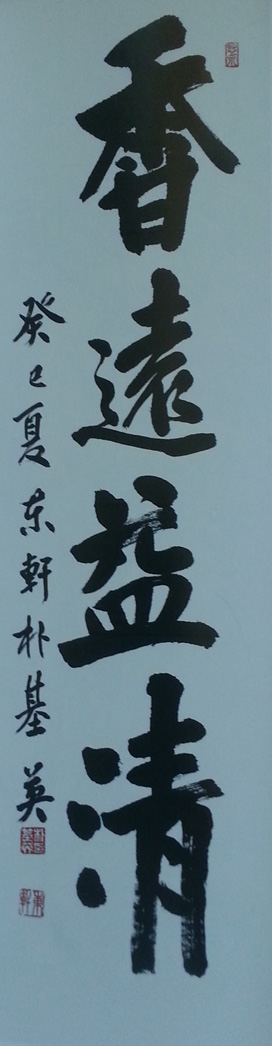 香遠益清
癸巳夏 东軒 朴基英